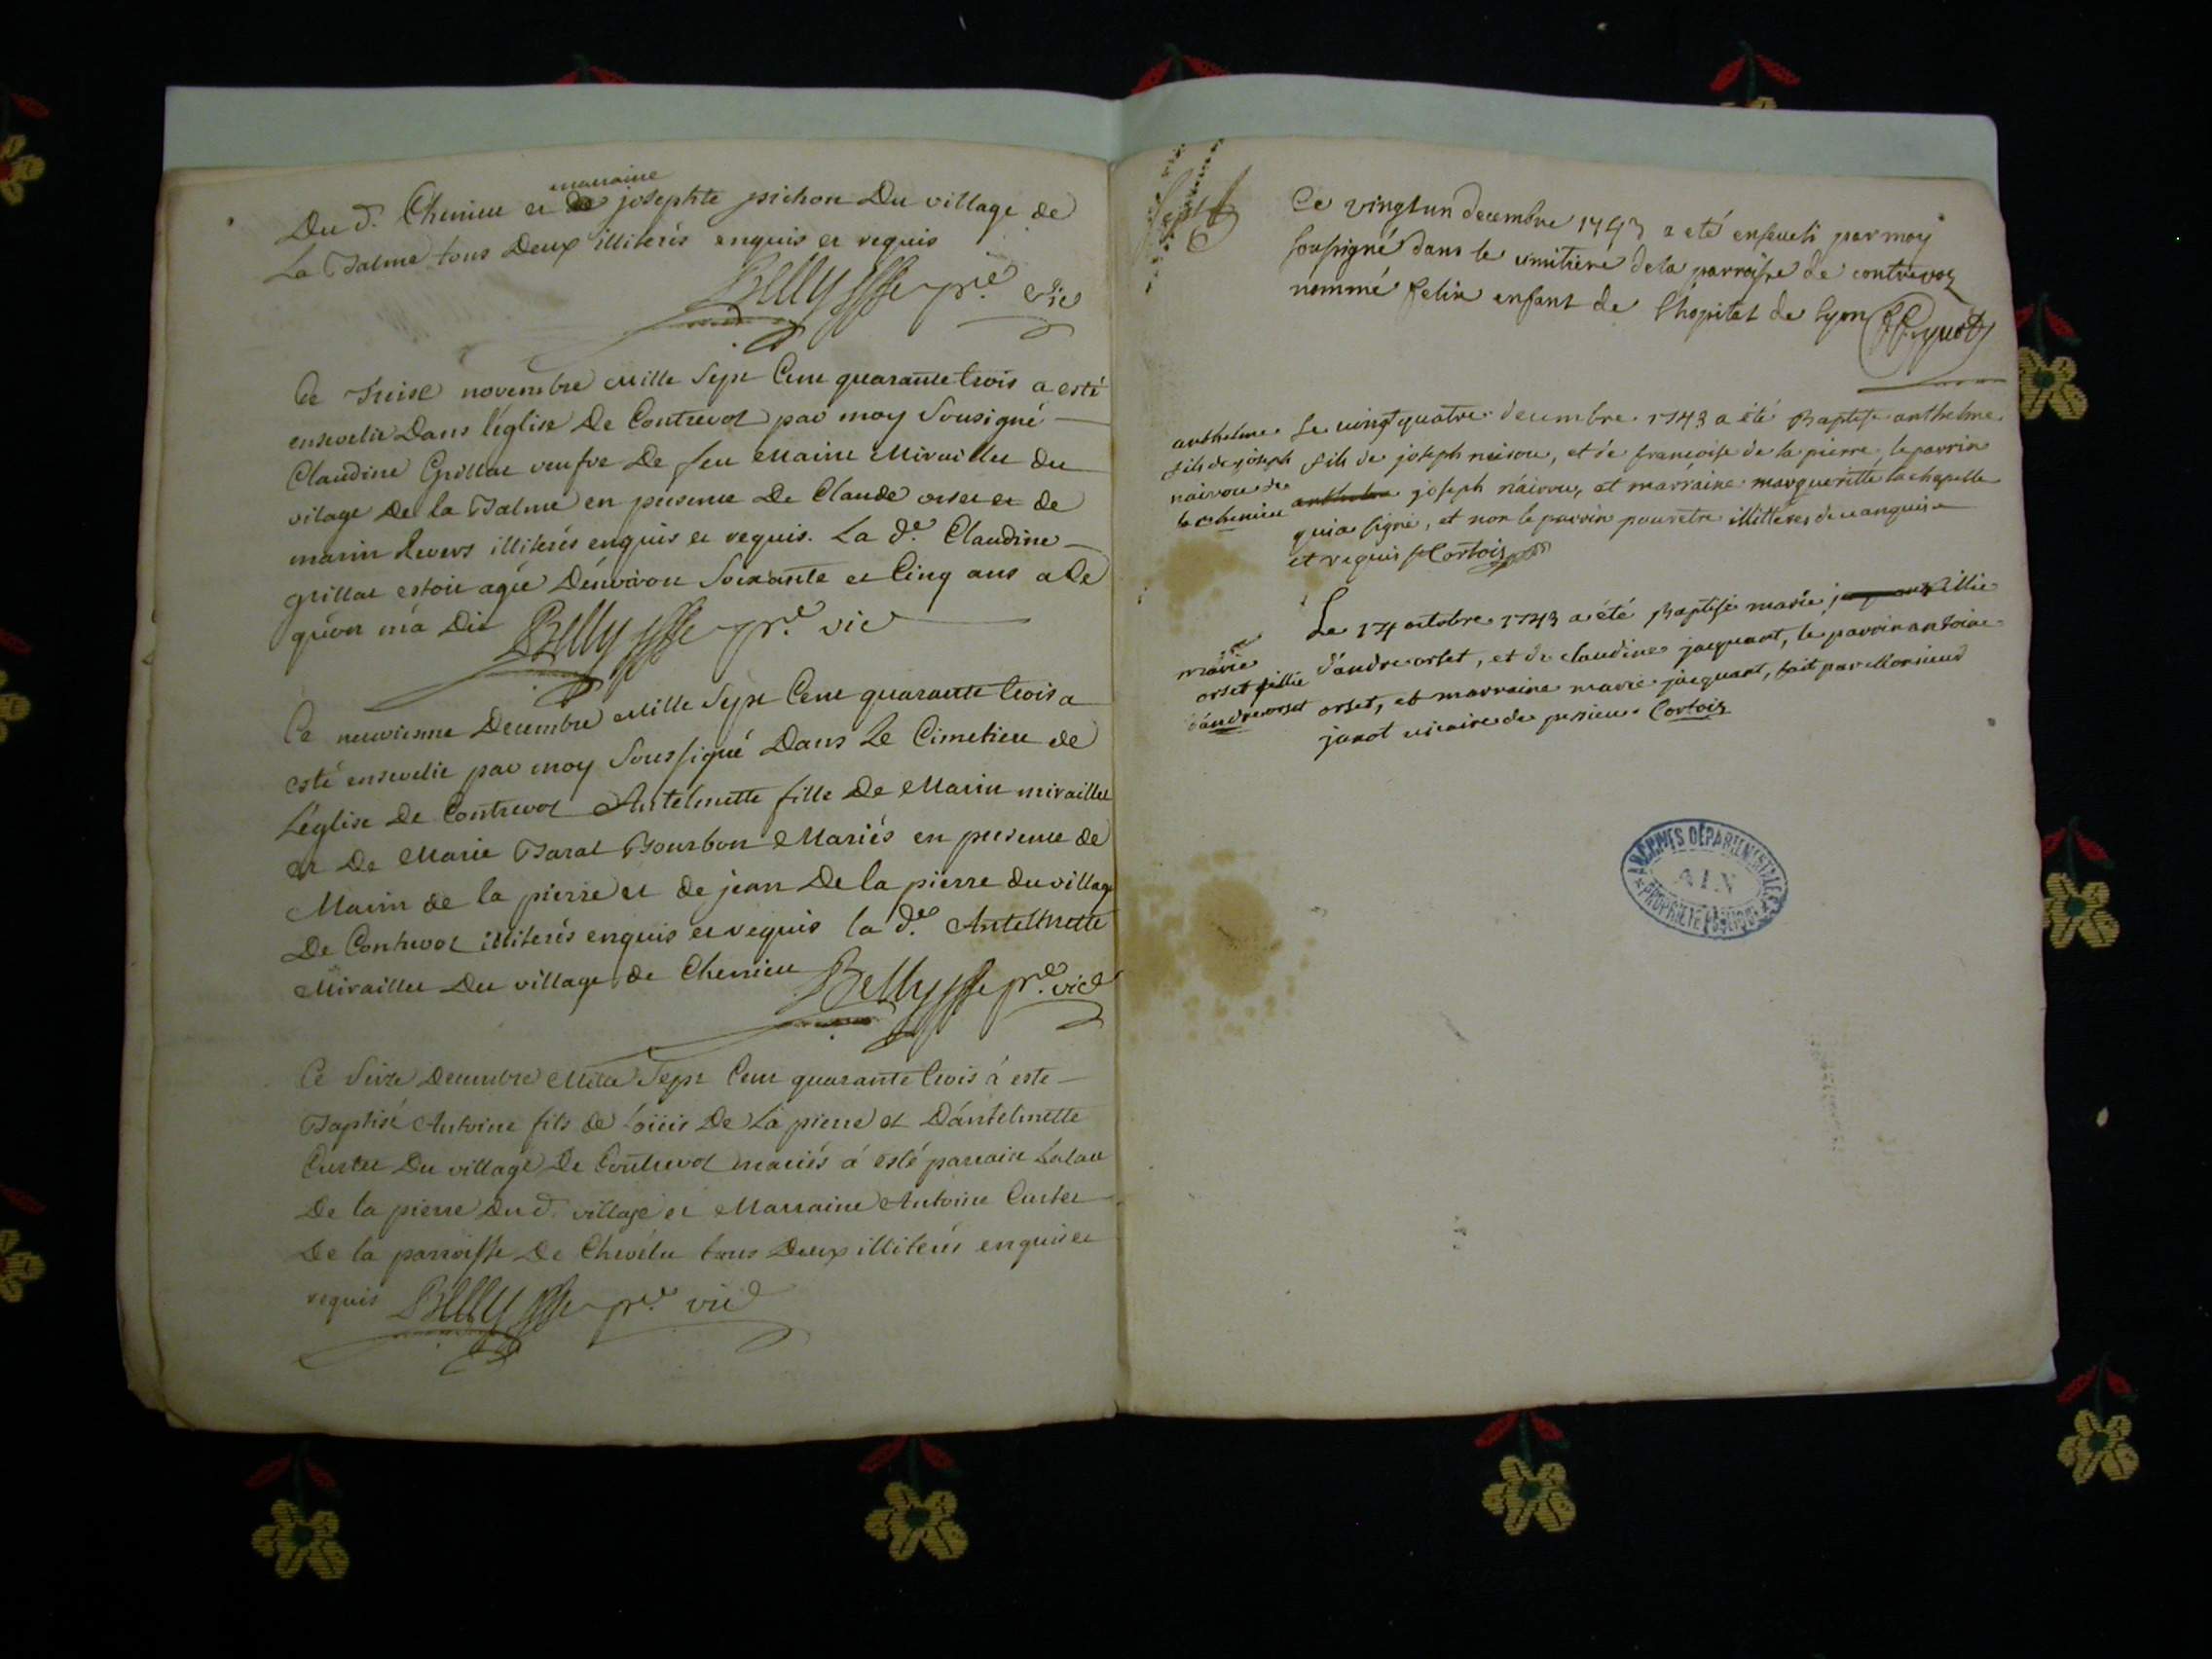 marraine
Du d. Chenieu et josephte pichon Du village de
La Balme tous Deux illiterés enquis et requis
Belly pre vic
Ce Treise novembre Mille Sept Cent quarante trois a esté
ensevelie Dans l'église De Contrevoz par moy Sousigné
Claudine Grillat veufve De feu Marin Miraillet du
vilage De la Balme en présence De Claude orset et de
marin Revers illiterés enquis et requis. La de. Claudine
grillat estoit agée D'environ Soixante et Cinq ans a Ce
qu'on m'a Dit Belly pre. vic
Ce neuvieme Decembre Mille Sept Cent quarante trois a
esté ensevelie par moy Soussigné Dans Le Cimetiere de
L'église De Contrevoz Antelmette fille De Marin miraillet
et De Marie Barat Bourbon Mariés en présence de
Marin de la pierre et de jean De la pierre du village
De Contrevoz illiterés enquis et requis la de. Antelmette
Miraillet Du village de Chenieu Belly pre. vic
Ce Seize Decembre Mille Sept Cent quarante trois à esté
Baptisé Antoine fils de Loüis De La pierre et D'antelmette
Curtet Du village De Contrevoz mariés à esté parrain
De la pierre Du d. village et Marraine Antoine Curtet
De la parroisse De Chevelu tous Deux illiterés enquis et
requis Belly pre. vic
Ce vingt un decembre 1743 a eté enseveli par moy
soussigné dans le cimitiere de la parroisse de contrevoz
nommé felix enfant de l'hopital de Lyon
anthelme
fils de joseph
nairou de
la chenieu
Le vingt quatre decembre 1743 a été Baptisé anthelme
fils de joseph nairou, et de francoise de la pierre, le parrin
joseph nairou, et marraine marguerite la chapelle
qui a signé, et non le parrin pour etre illitteres de ce anquis
et requis Cortois
marie
orset fillie
d'andre orset
Le 14 octobre 1743 a été Baptisé marie fillie
d'andre orset, et de claudine jacquant, le parrin antoine
orset, et marraine marie jacquant, fait par Monsieur
janot vicaire de pezieu. Cortois
ARCHIVES DÉPARTEMENTALES
AIN
PROPRIÉTÉ PUBLIQUE